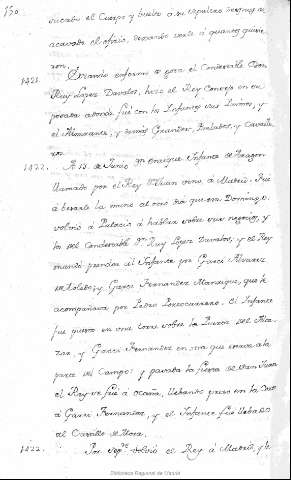 150
sacado el Cuerpo y buelto a su sepulcro despues de
acavado el oficio, dexando verle à quantos quisie
ron.
1421. Estando enfermo
Ruy Lopez Davalos, hizo el Rey Consejo en su
posada adonde fuè con los Infantes sus Primos, y
el Almirante, y demas Grandes, Prelados, y Cavalle
ros.
1422. A 13 de Junio Dn. Enrique Infante de Aragon
llamado por el Rey Dn. Juan vino à Madrid. Fue
à besarle la mano al otro dia que era Domingo.
volviò à Palacio à hablar sobre sus negocios, y
los del Condestable Dn. Ruy Lopez Davalos, y el Rey
mandò prender al Infante por Garci Alvarez
de Toledo, y Garci Fernandez Manrique, que le
acompañava por Pedro Portocarrero. El Infante
fue puesto en una torre sobre la Puerta del Alca
zar, y Garci Fernandez en otra que estava à la
parte del Campo: y pasada la fiesta de San Juan
el Rey se fuè à Ocaña, llebando preso
à Garci Fernandez, y el Infante fuè llebado
al Castillo de Mora.
1422. Por Sepre. volviò el Rey à Madrid, y
Biblioteca Regional de Madrid